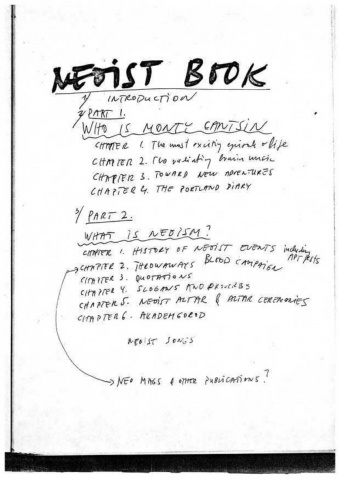 NEOIST BOOK
1/ INTRODUCTION
2/ PART 1.
WHO IS MONTY CANTSIN
CHAPTER 1. The most exciting episode of life
CHAPTER 2. The radiating brain music
CHAPTER 3. TOWARD NEW ADVENTURES
CHAPTER 4. THE PORTLAND DIARY
3/ PART 2.
WHAT IS NEOISM?
CHAPTER 1. HISTORY OF NEOIST EVENTS including APT FESTS
CHAPTER 2. THROWAWAYS BLOOD CAMPAIGN
CHAPTER 3. QUOTATIONS
CHAPTER 4. SLOGANS AND PROVERBS
CHAPTER 5. NEOIST ALTAR & ALTAR CEREMONIES
CHAPTER 6. AKADEMGOROD
NEOIST SONGS
NEO MAGS & OTHER PUBLICATIONS?